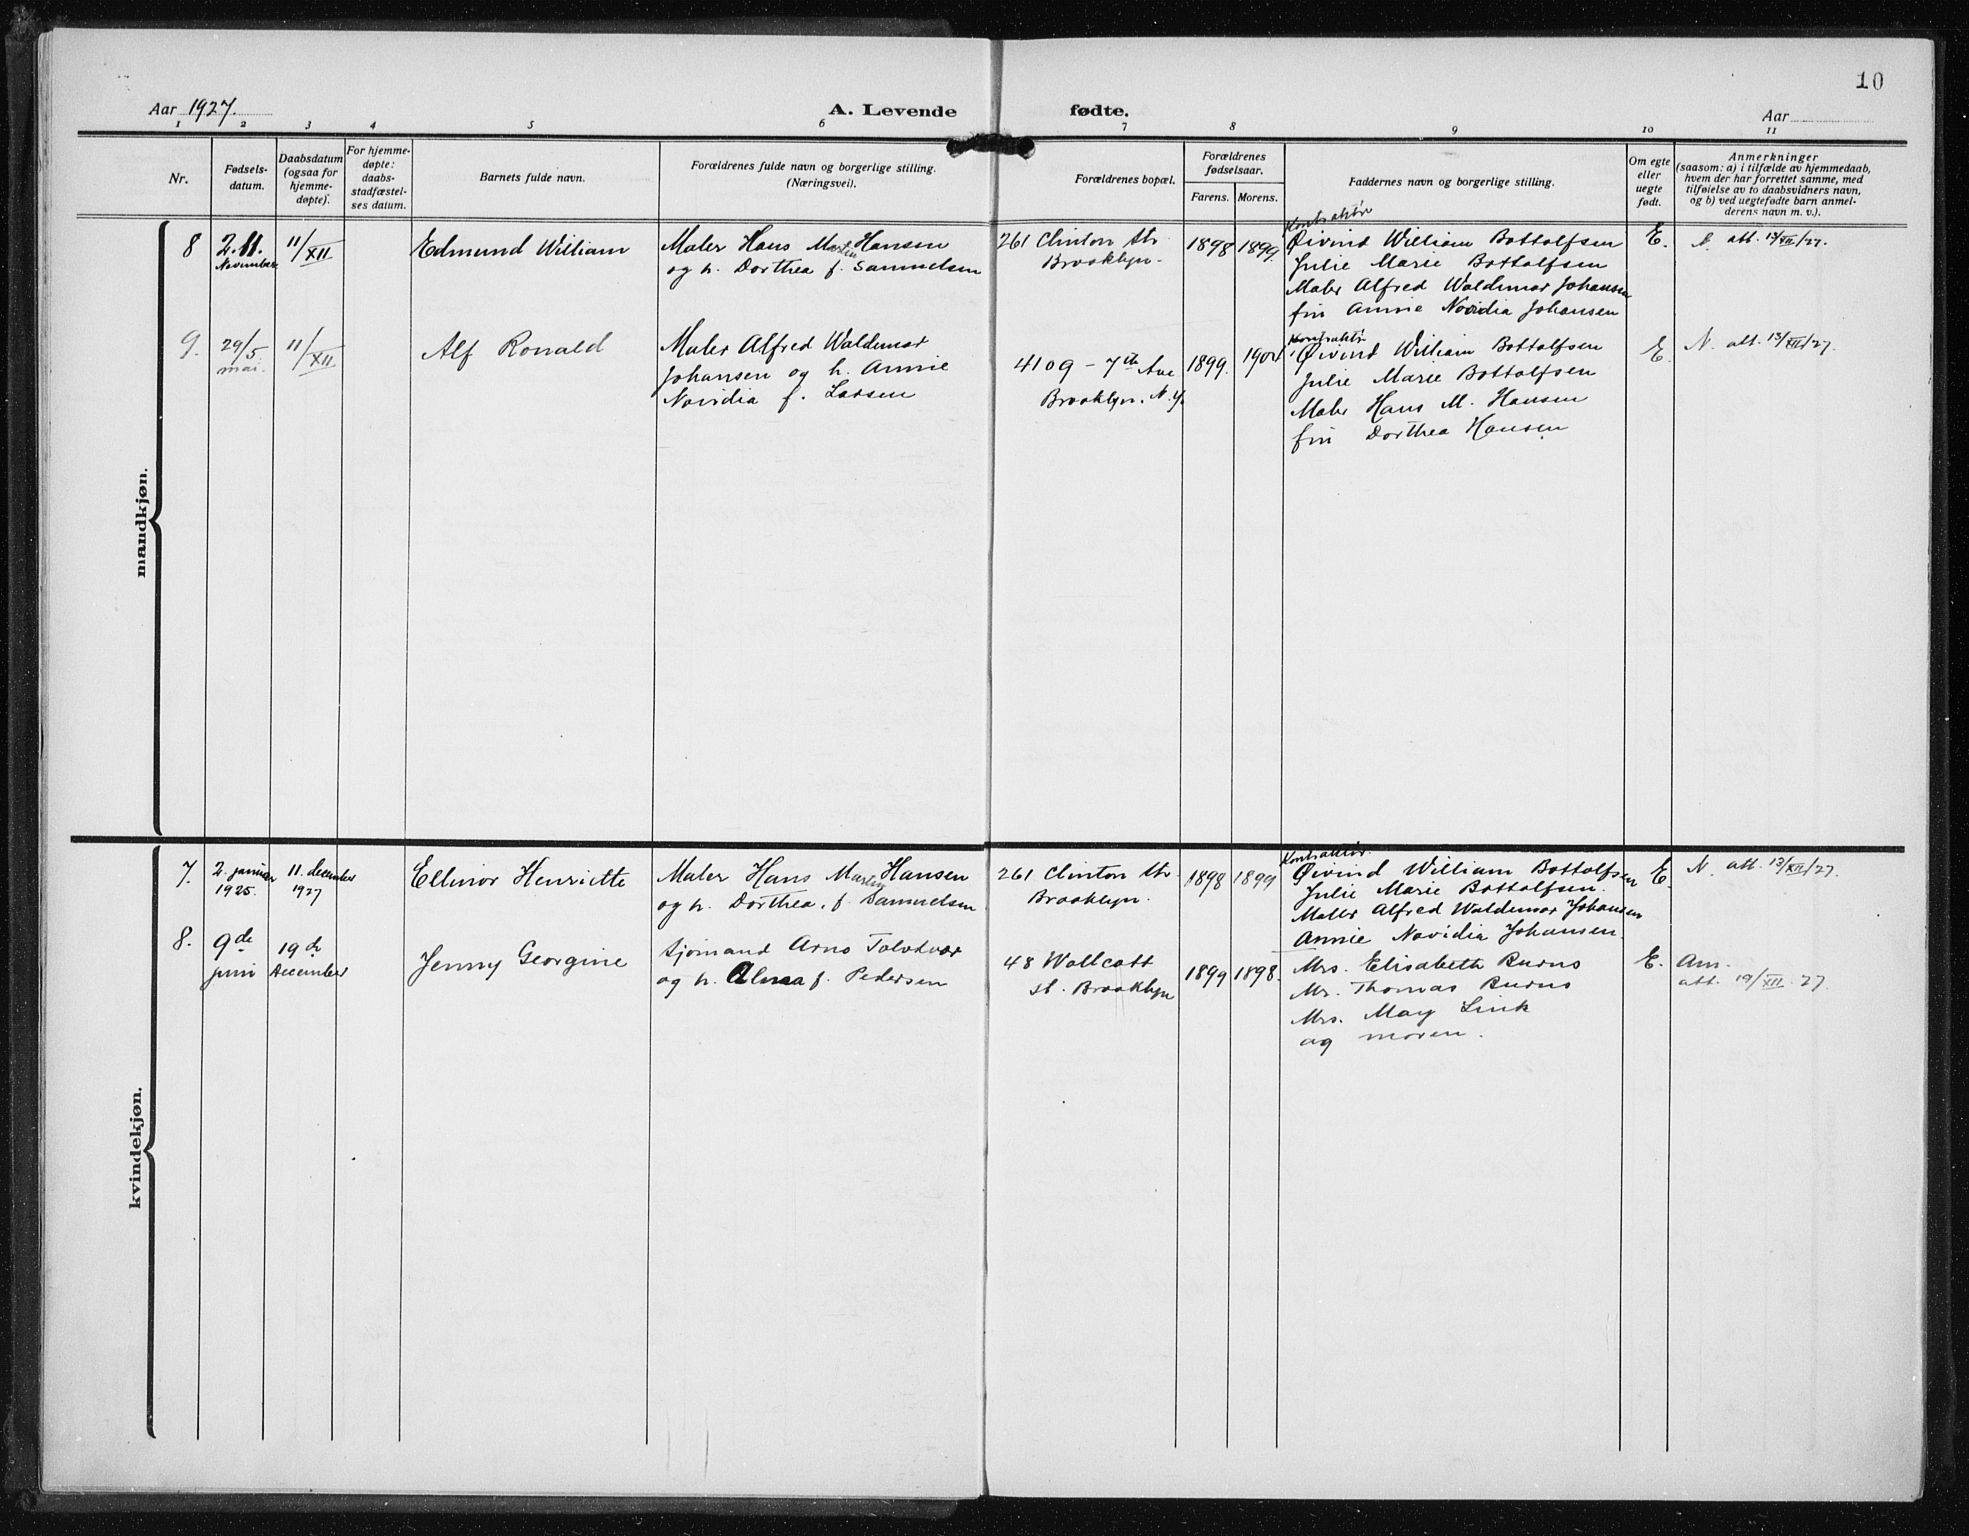 10
Aar 1927.
A. Levende fødte.
Aar
1 2 3 4 5 6 7 8 9 10 11
Nr.
Fødsels-
datum.
Daabsdatum
(ogsaa for
hjemme-
døpte).
For hjemme-
døpte:
daabs-
stadfæstel-
ses datum.
Barnets fulde navn.
Forældrenes fulde navn og borgerlige stilling.
(Næringsvei).
Forældrenes bopæl.
Forældrenes
fødselsaar.
Farens. Morens.
Faddernes navn og borgerlige stilling.
Om egte
eller
uegte
født.
Anmerkninger
(saasom: a) i tilfælde av hjemmedaab,
hvem der har forrettet samme, med
tilføielse av to daabsvidners navn,
og b) ved uegtefødte barn anmel-
derens navn m. v.).
mandkjøn.
8
2.11.
November
11/XII
Edmund William
Maler Hans Martin Hansen
og h. Dorthea f. Samuelsen
261 Clinton Str.
Brooklyn.
1898
1899.
Kontraktør
Øivind William Bottolfsen
Julie Marie Bottolfsen
Maler Alfred Waldemar Johansen
fru Annie Novidia Johansen
E.
N. att. 13/XII/27.
9.
29/5
mai.
11/XII
Alf Ronald
Maler Alfred Waldemar
Johansen og h. Annie
Novidia f. Larsen
4109 - 7th Ave
Brooklyn. N.Y.
1899.
Kontraktør
Øivind William Bottolfsen
Julie Marie Bottolfsen
Maler Hans M. Hansen
fru Dorthea Hansen
E.
N. att. 13/XII/27.
kvindekjøn.
7.
2. januar
1925.
11. december
1927
Ellinor Henriette
Maler Hans Martin Hansen
og h. Dorthea, f. Samuelsen
261 Clinton Str.
Brooklyn.
1898
1899
Kontraktør.
Øivind William Bottolfsen
Julie Marie Bottolfsen.
Maler Alfred Waldemar Johansen
Annie Novidia Johansen.
E.
N. att. 13/XII/27.
8.
9de
juni
19de
December
Jenny Georgine
Sjömand Arno
og h. Alma f. Pedersen
48 Wallcott
st. Brooklyn
1899
1898.
Mrs. Elisabeth Burns
Mr. Thomas Burns
Mrs. May Link
og moren.
E.
Am.
att. 19/XII. 27.